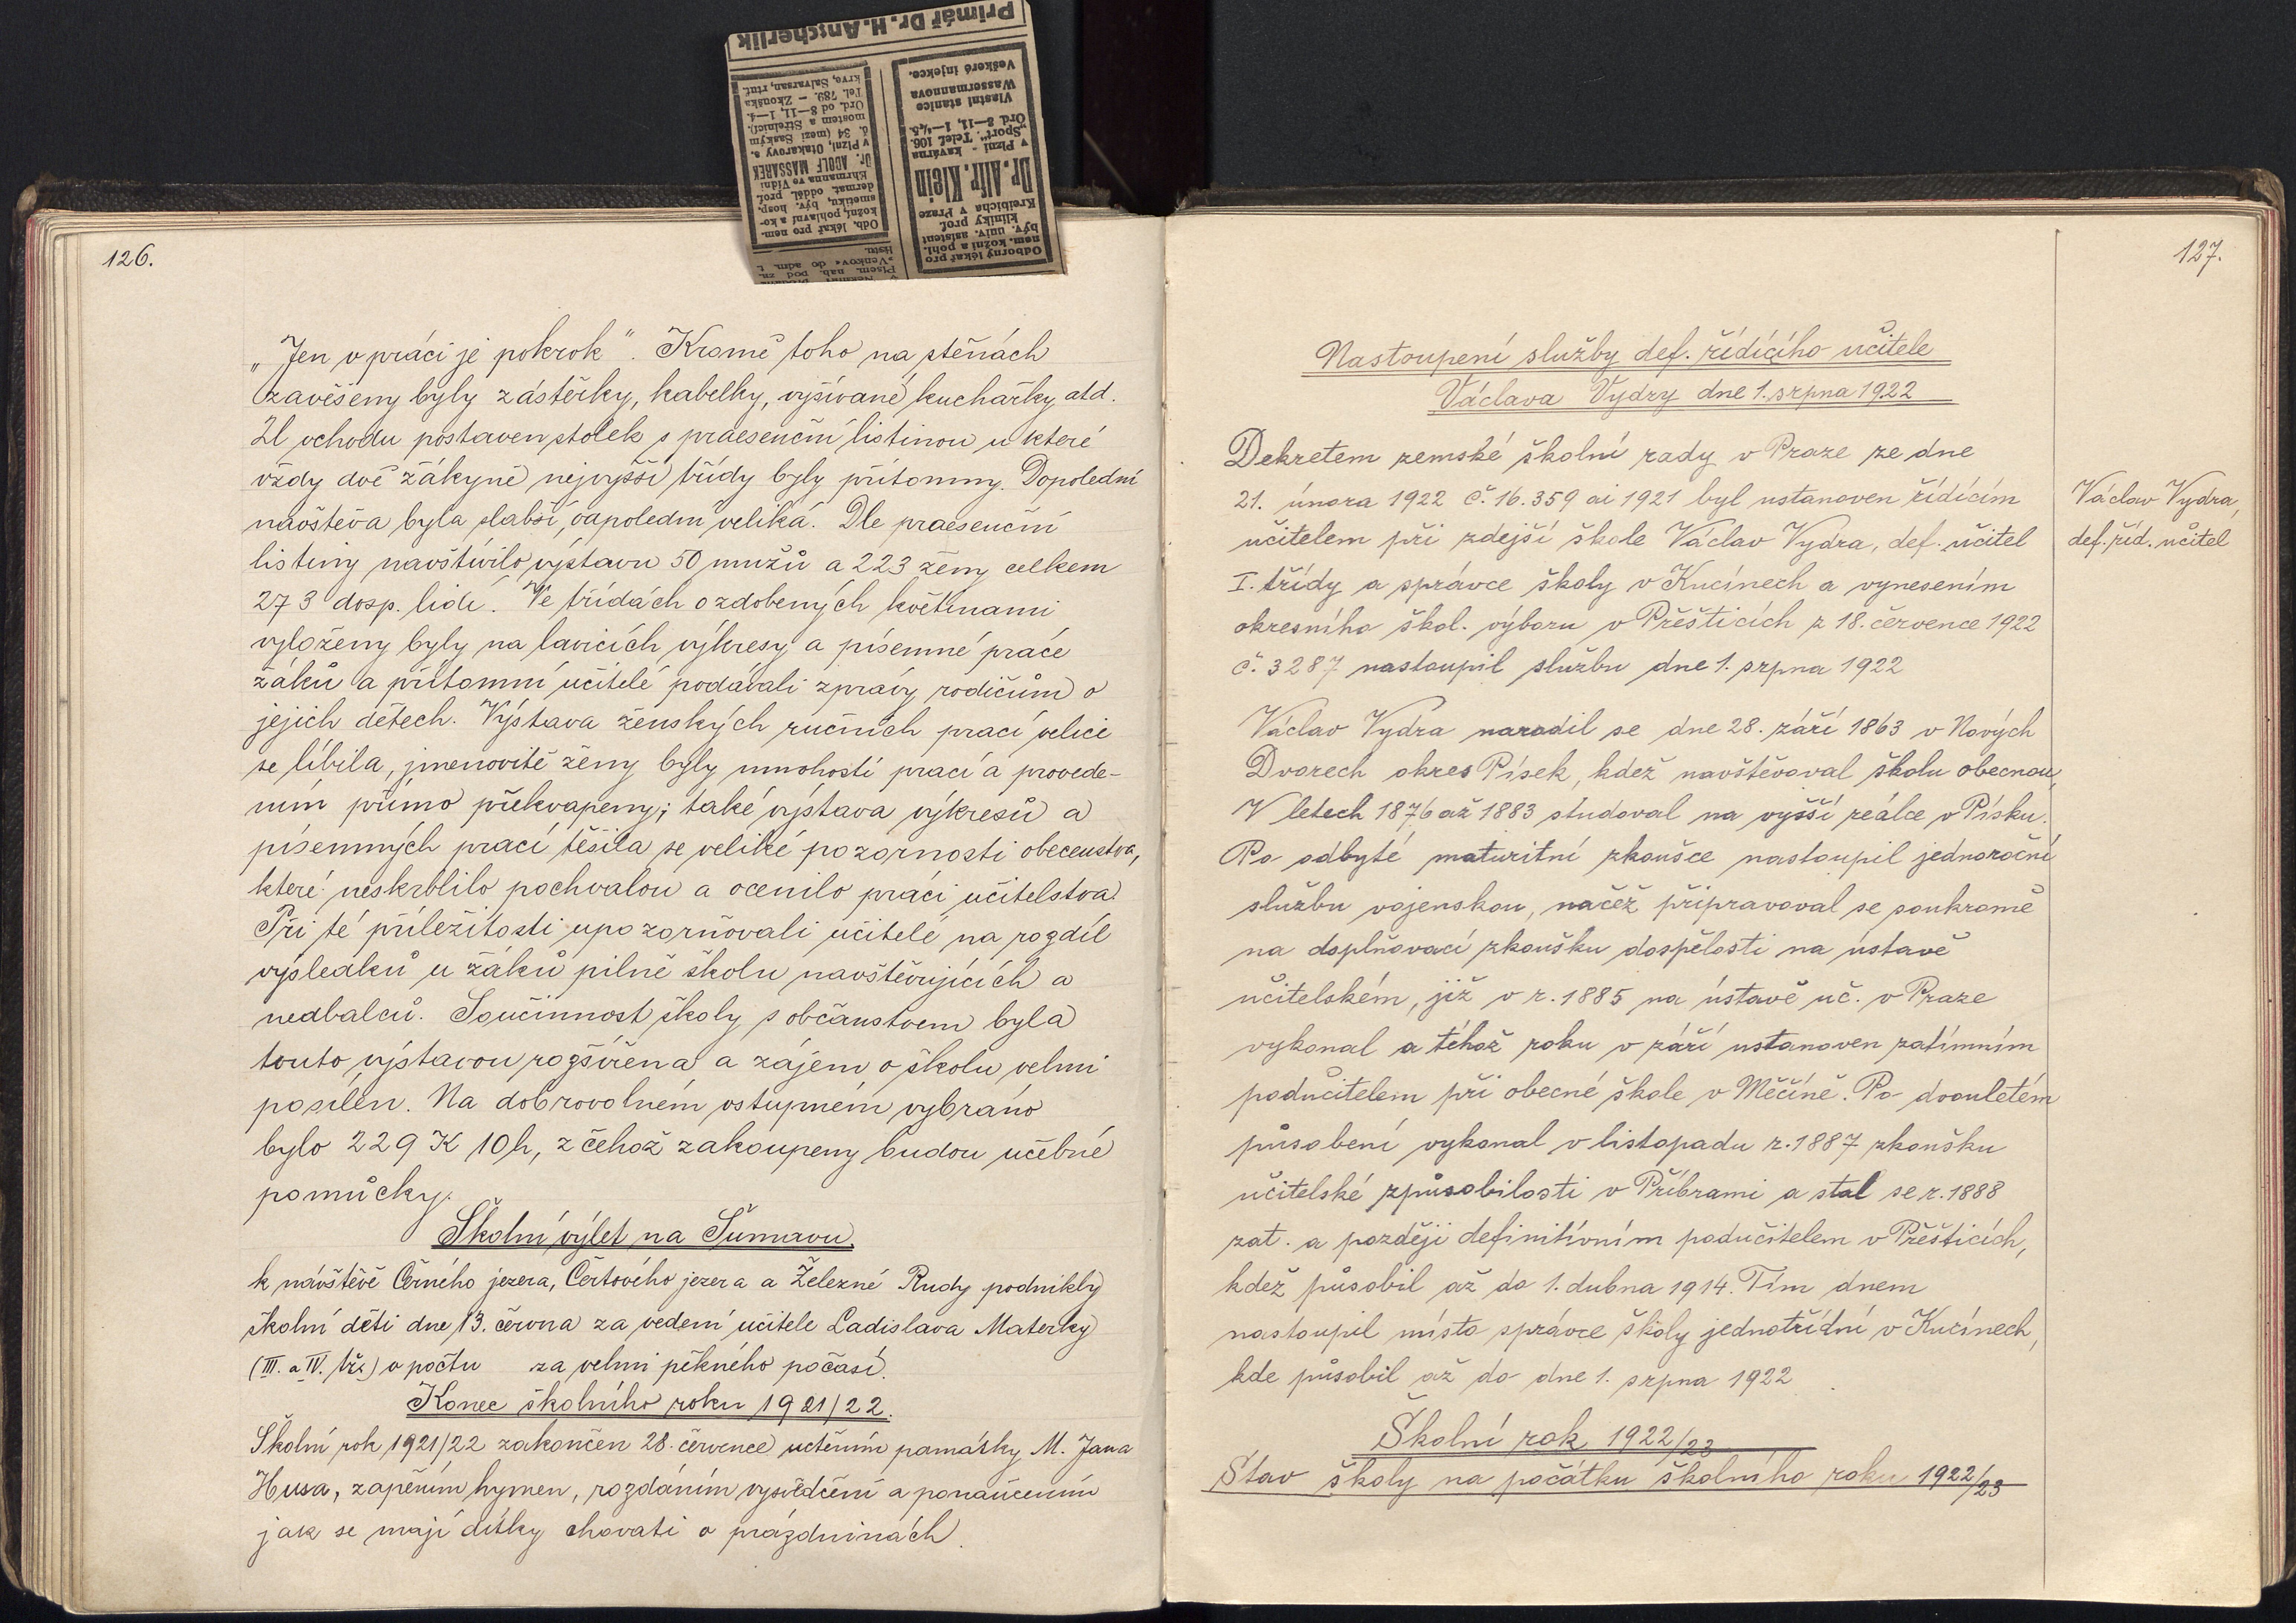 126.
„Jen v práci je pokrok". Kromě toho na stěnách
zavěšeny byly zástěrky, kabelky, vyšívané kuchařky atd.
U vchodu postaven stolek s praesenční listinou u které
vždy dvě žákyně nejvyšší třídy byly přítomny. Dopolední
návštěva byla slabší, odpolední veliká. Dle praesenční
listiny navštívilo výstavu 50 mužů a 223 ženy celkem
273 dosp. lidí. Ve třídách ozdobených květinami
vyloženy byly na lavicích výkresy a písemné práce
žáků a přítomní učitelé podávali zprávy rodičům o
jejich dětech. Výstava ženských ručních prací velice
se líbila, jmenovitě ženy byly mnohostí prací a provede-
ním přímo překvapeny; také výstava výkresů a
písemných prací těšila se veliké pozornosti obecenstva,
které neskrblilo pochvalou a ocenilo práci učitelstva.
Při té příležitosti upozorňovali učitelé na rozdíl
výsledků u žáků pilně školu navštěvujících a
nedbalců. Součinnost školy s občanstvem byla
touto výstavou rozšířena a zájem o školu velmi
posílen. Na dobrovolném vstupném vybráno
bylo 229 K 10 h, z čehož zakoupeny budou učebné
pomůcky.
Školní výlet na Šumavu.
k návštěvě Černého jezera, Čertového jezera a Železné Rudy podnikly
školní děti dne 13. června za vedení učitele Ladislava Materky
(III. a IV. tř.) v počtu za velmi pěkného počasí.
Konec školního roku 1921/22.
Školní rok 1921/22 zakončen 28. července uctěním památky M. Jana
Husa, zapěním hymen, rozdáním vysvědčení a ponaučením
jak se mají dítky chovati o prázdninách.
Primář Dr. H. Anscherlik
Odborný lékař pro
nem. kožní a pohl.
býv. univ. asistent
kliniky prof.
Kreibicha v Praze
Dr. Alfr. Klein
v Plzni - kavárna
„Sport". Telef. 106.
Ord. 8—11, 1—½5.
Vlastní stanice
Wassermannova
Veškeré injekce.
Písem. nab. pod zn.
»Venkov« do adm. t.
listu.
Odb. lékař pro nem.
kožní, pohlavní a ko-
smetiku, býv. hosp.
dermat. odděl. prof.
Ehrmanna ve Vídni
Dr. ADOLF MASSAREK
v Plzni, Otakarovy s.
č. 34 (mezi Saským
mostem a Střelnicí).
Ord. od 8—11, 1—4.
Tel. 789. — Zkouška
krve, Salvarsan, rtuť.
127.
Nastoupení služby def. řídícího učitele
Václava Vydry dne 1. srpna 1922
Dekretem zemské školní rady v Praze ze dne
21. února 1922 č. 16.359 ai 1921 byl ustanoven řídícím
učitelem při zdejší škole Václav Vydra, def. učitel
I. třídy a správce školy v Kucínech a vynesením
okresního škol. výboru v Přešticích z 18. července 1922
č. 3287 nastoupil službu dne 1. srpna 1922
Václav Vydra,
def. říd. učitel
Václav Vydra narodil se dne 28. září 1863 v Nových
Dvorech okres Písek, kdež navštěvoval školu obecnou,
V letech 1876 až 1883 studoval na vyšší reálce v Písku.
Po odbyté maturitní zkoušce nastoupil jednoroční
službu vojenskou, načež připravoval se soukromě
na doplňovací zkoušku dospělosti na ústavě
učitelském, již v r. 1885 na ústavě uč. v Praze
vykonal a téhož roku v září ustanoven zatímním
podučitelem při obecné škole v Měčíně. Po dvouletém
působení vykonal v listopadu r. 1887 zkoušku
učitelské způsobilosti v Příbrami a stal se r. 1888
zat. a později definitivním podučitelem v Přešticích,
kdež působil až do 1. dubna 1914. Tím dnem
nastoupil místo správce školy jednotřídní v Kucínech,
kde působil až do dne 1. srpna 1922
Školní rok 1922/23
Stav školy na počátku školního roku 1922/23